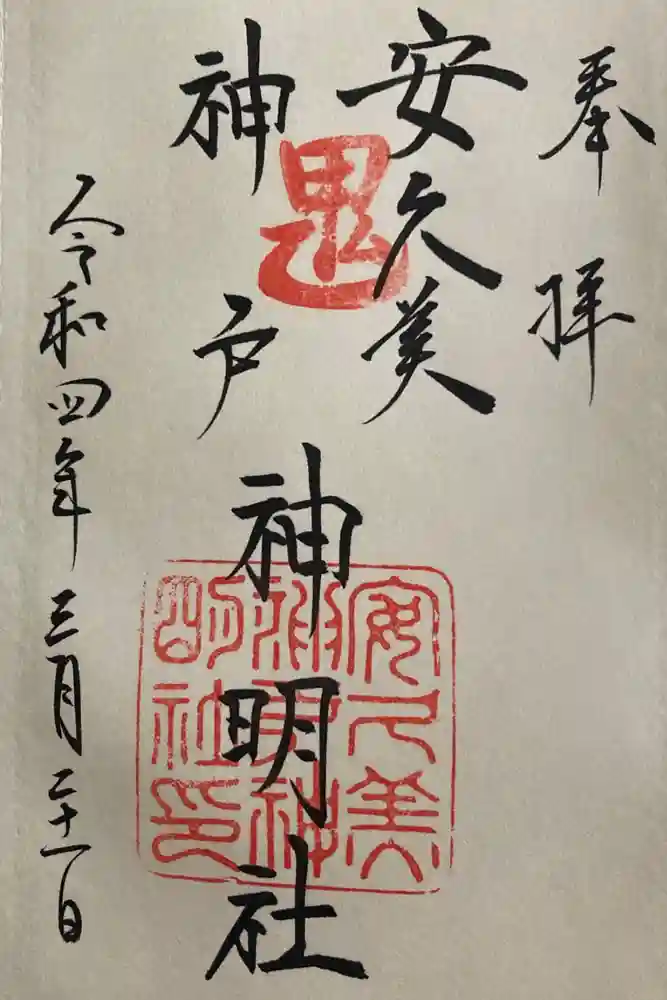 奉拝
安久美
神戸
神明社
令和四年三月二十一日
鬼
安久美
神戸神
明社印